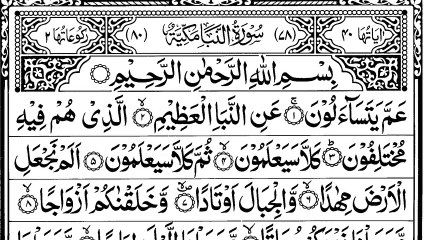 اٰیَاتُهَا ۴۰ (۷۸) سُوْرَةُ النَّبَاِ مَكِّيَّةٌ (۸۰) رُكُوْعَاتُهَا ۲
بِسْمِ اللّٰهِ الرَّحْمٰنِ الرَّحِيْمِ
عَمَّ يَتَسَآءَلُوْنَ ۚ﴿۱﴾ عَنِ النَّبَاِ الْعَظِيْمِ ۙ﴿۲﴾ الَّذِىْ هُمْ فِيْهِ
مُخْتَلِفُوْنَ ؕ﴿۳﴾ كَلَّا سَيَعْلَمُوْنَ ۙ﴿۴﴾ ثُمَّ كَلَّا سَيَعْلَمُوْنَ ﴿۵﴾ اَلَمْ نَجْعَلِ
الْاَرْضَ مِهٰدًا ۙ﴿۶﴾ وَّالْجِبَالَ اَوْتَادًا ۪ۙ﴿۷﴾ وَّخَلَقْنٰكُمْ اَزْوَاجًا ۙ﴿۸﴾